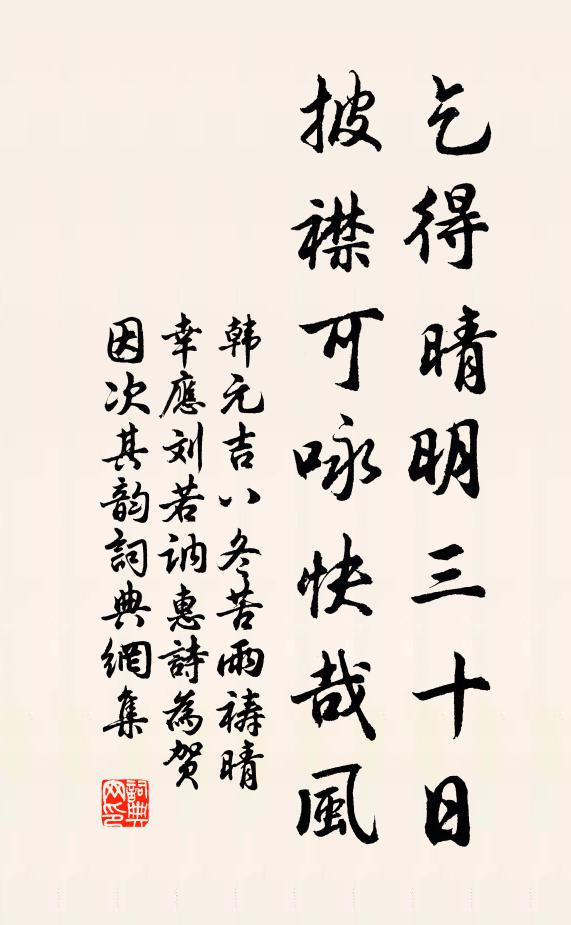 乞得晴明三十日
披襟可咏快哉風
韩元吉八冬苦雨祷晴
幸應刘若讷惠詩為贺
因次其韵詞典網集
詞典网印